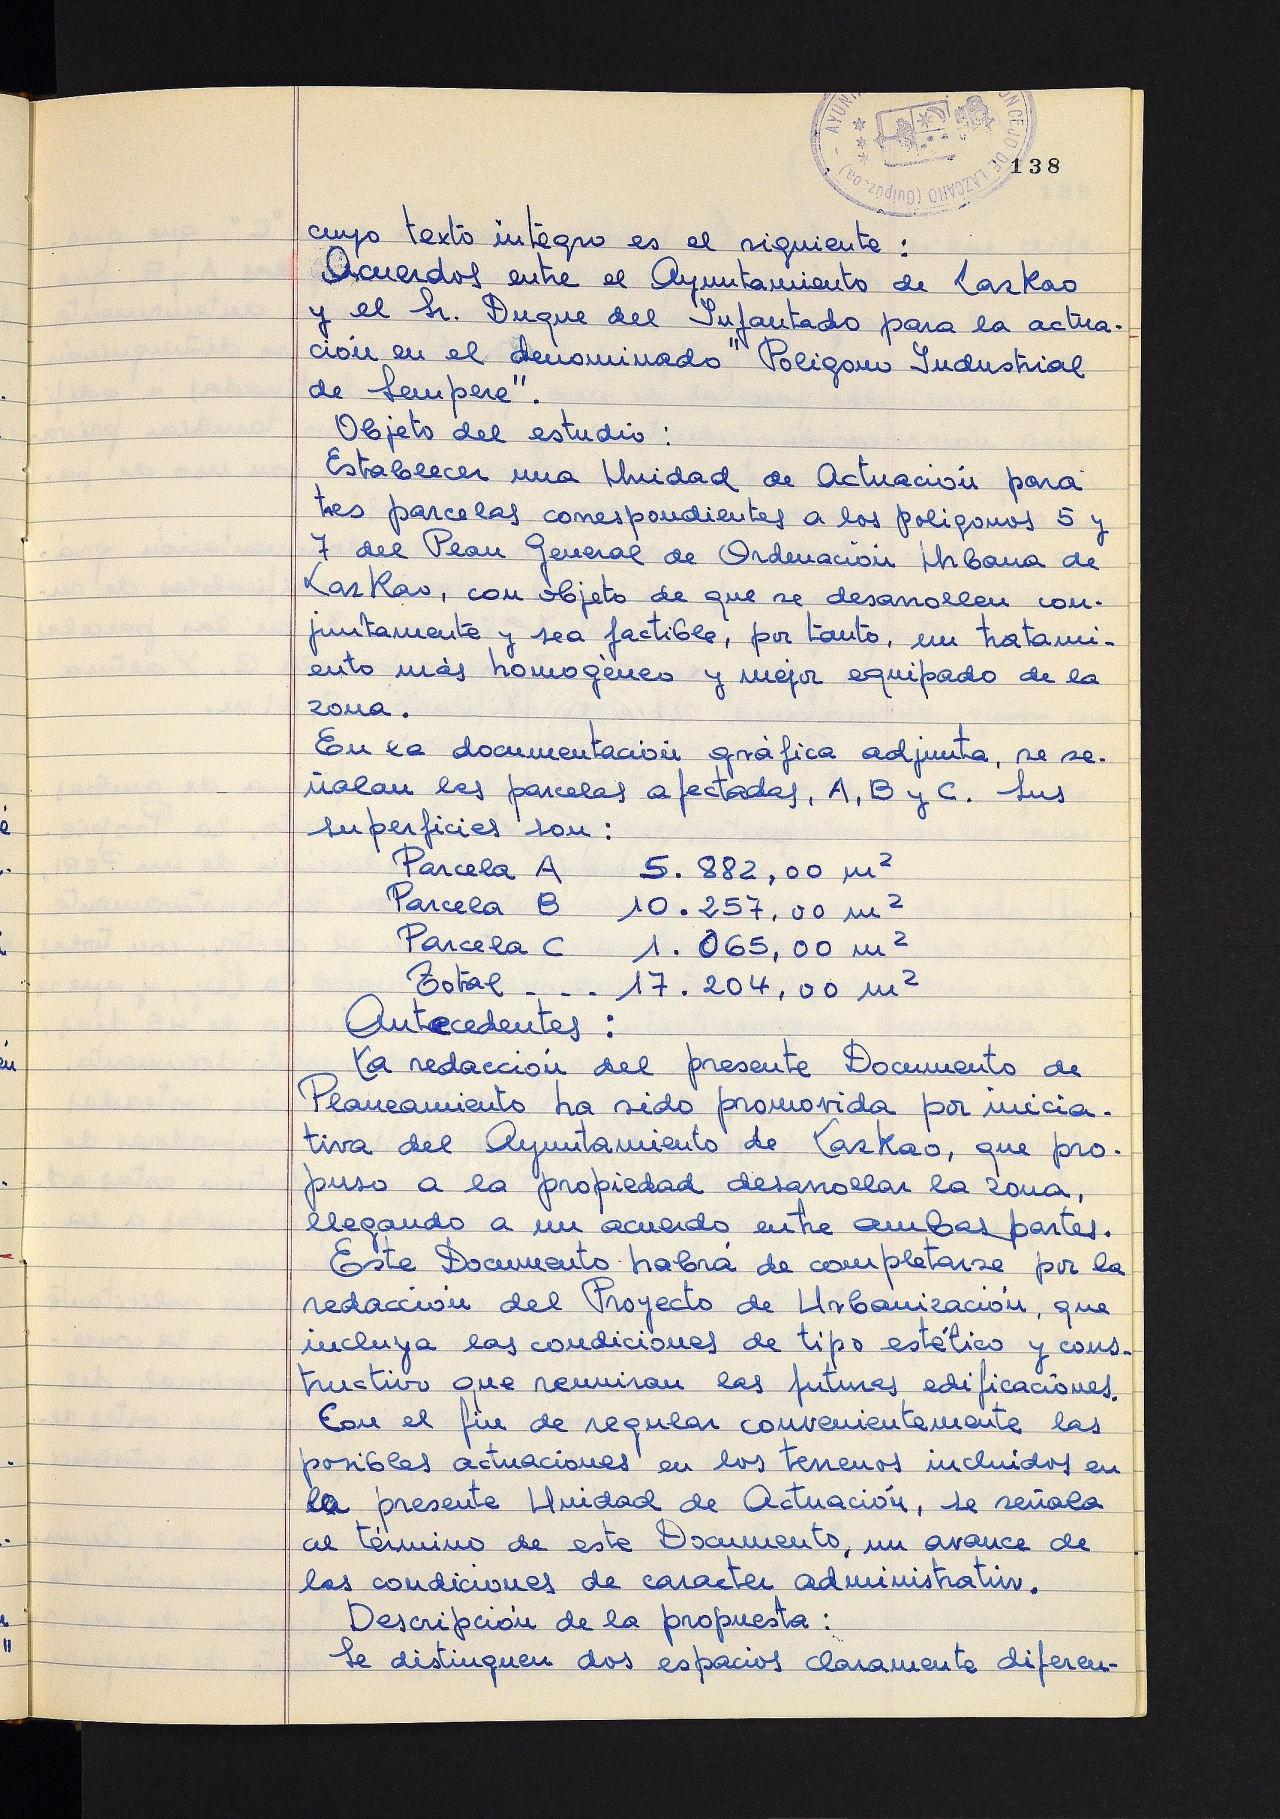 - AYUN
ONCEJO DE LAZCANO (Guipúzcoa)
138
cuyo texto integro es el siguiente :
Acuerdos entre el Ayuntamiento de Lazkao
y el Sr. Duque del Infantado para la actua-
ción en el denominado "Poligono Industrial
de Sempere".
Objeto del estudio :
Establecer una Unidad de Actuación para
tres parcelas correspondientes a los poligonos 5 y
7 del Plan General de Ordenación Urbana de
Lazkao, con objeto de que se desarrollen con-
juntamente y sea factible, por tanto, un tratami-
ento más homogéneo y mejor equipado de la
zona.
En la documentación gráfica adjunta, se se-
ñalan las parcelas afectadas, A, B y C. Sus
superficies son :
Parcela A 5.882,00 m²
Parcela B 10.257,00 m²
Parcela C 1.065,00 m²
Total - - - 17.204,00 m²
Antecedentes :
La redacción del presente Documento de
Planeamiento ha sido promovida por inicia-
tiva del Ayuntamiento de Lazkao, que pro-
puso a la propiedad desarrollar la zona,
llegando a un acuerdo entre ambas partes.
Este Documento habrá de completarse por la
redacción del Proyecto de Urbanización, que
incluya las condiciones de tipo estético y cons-
tructivo que reuniran las futuras edificaciones.
Con el fin de regular convenientemente las
posibles actuaciones en los terrenos incluidos en
la presente Unidad de Actuación, se señala
al término de este Documento, un avance de
las condiciones de caracter administrativo.
Descripción de la propuesta :
Se distinguen dos espacios claramente diferen-